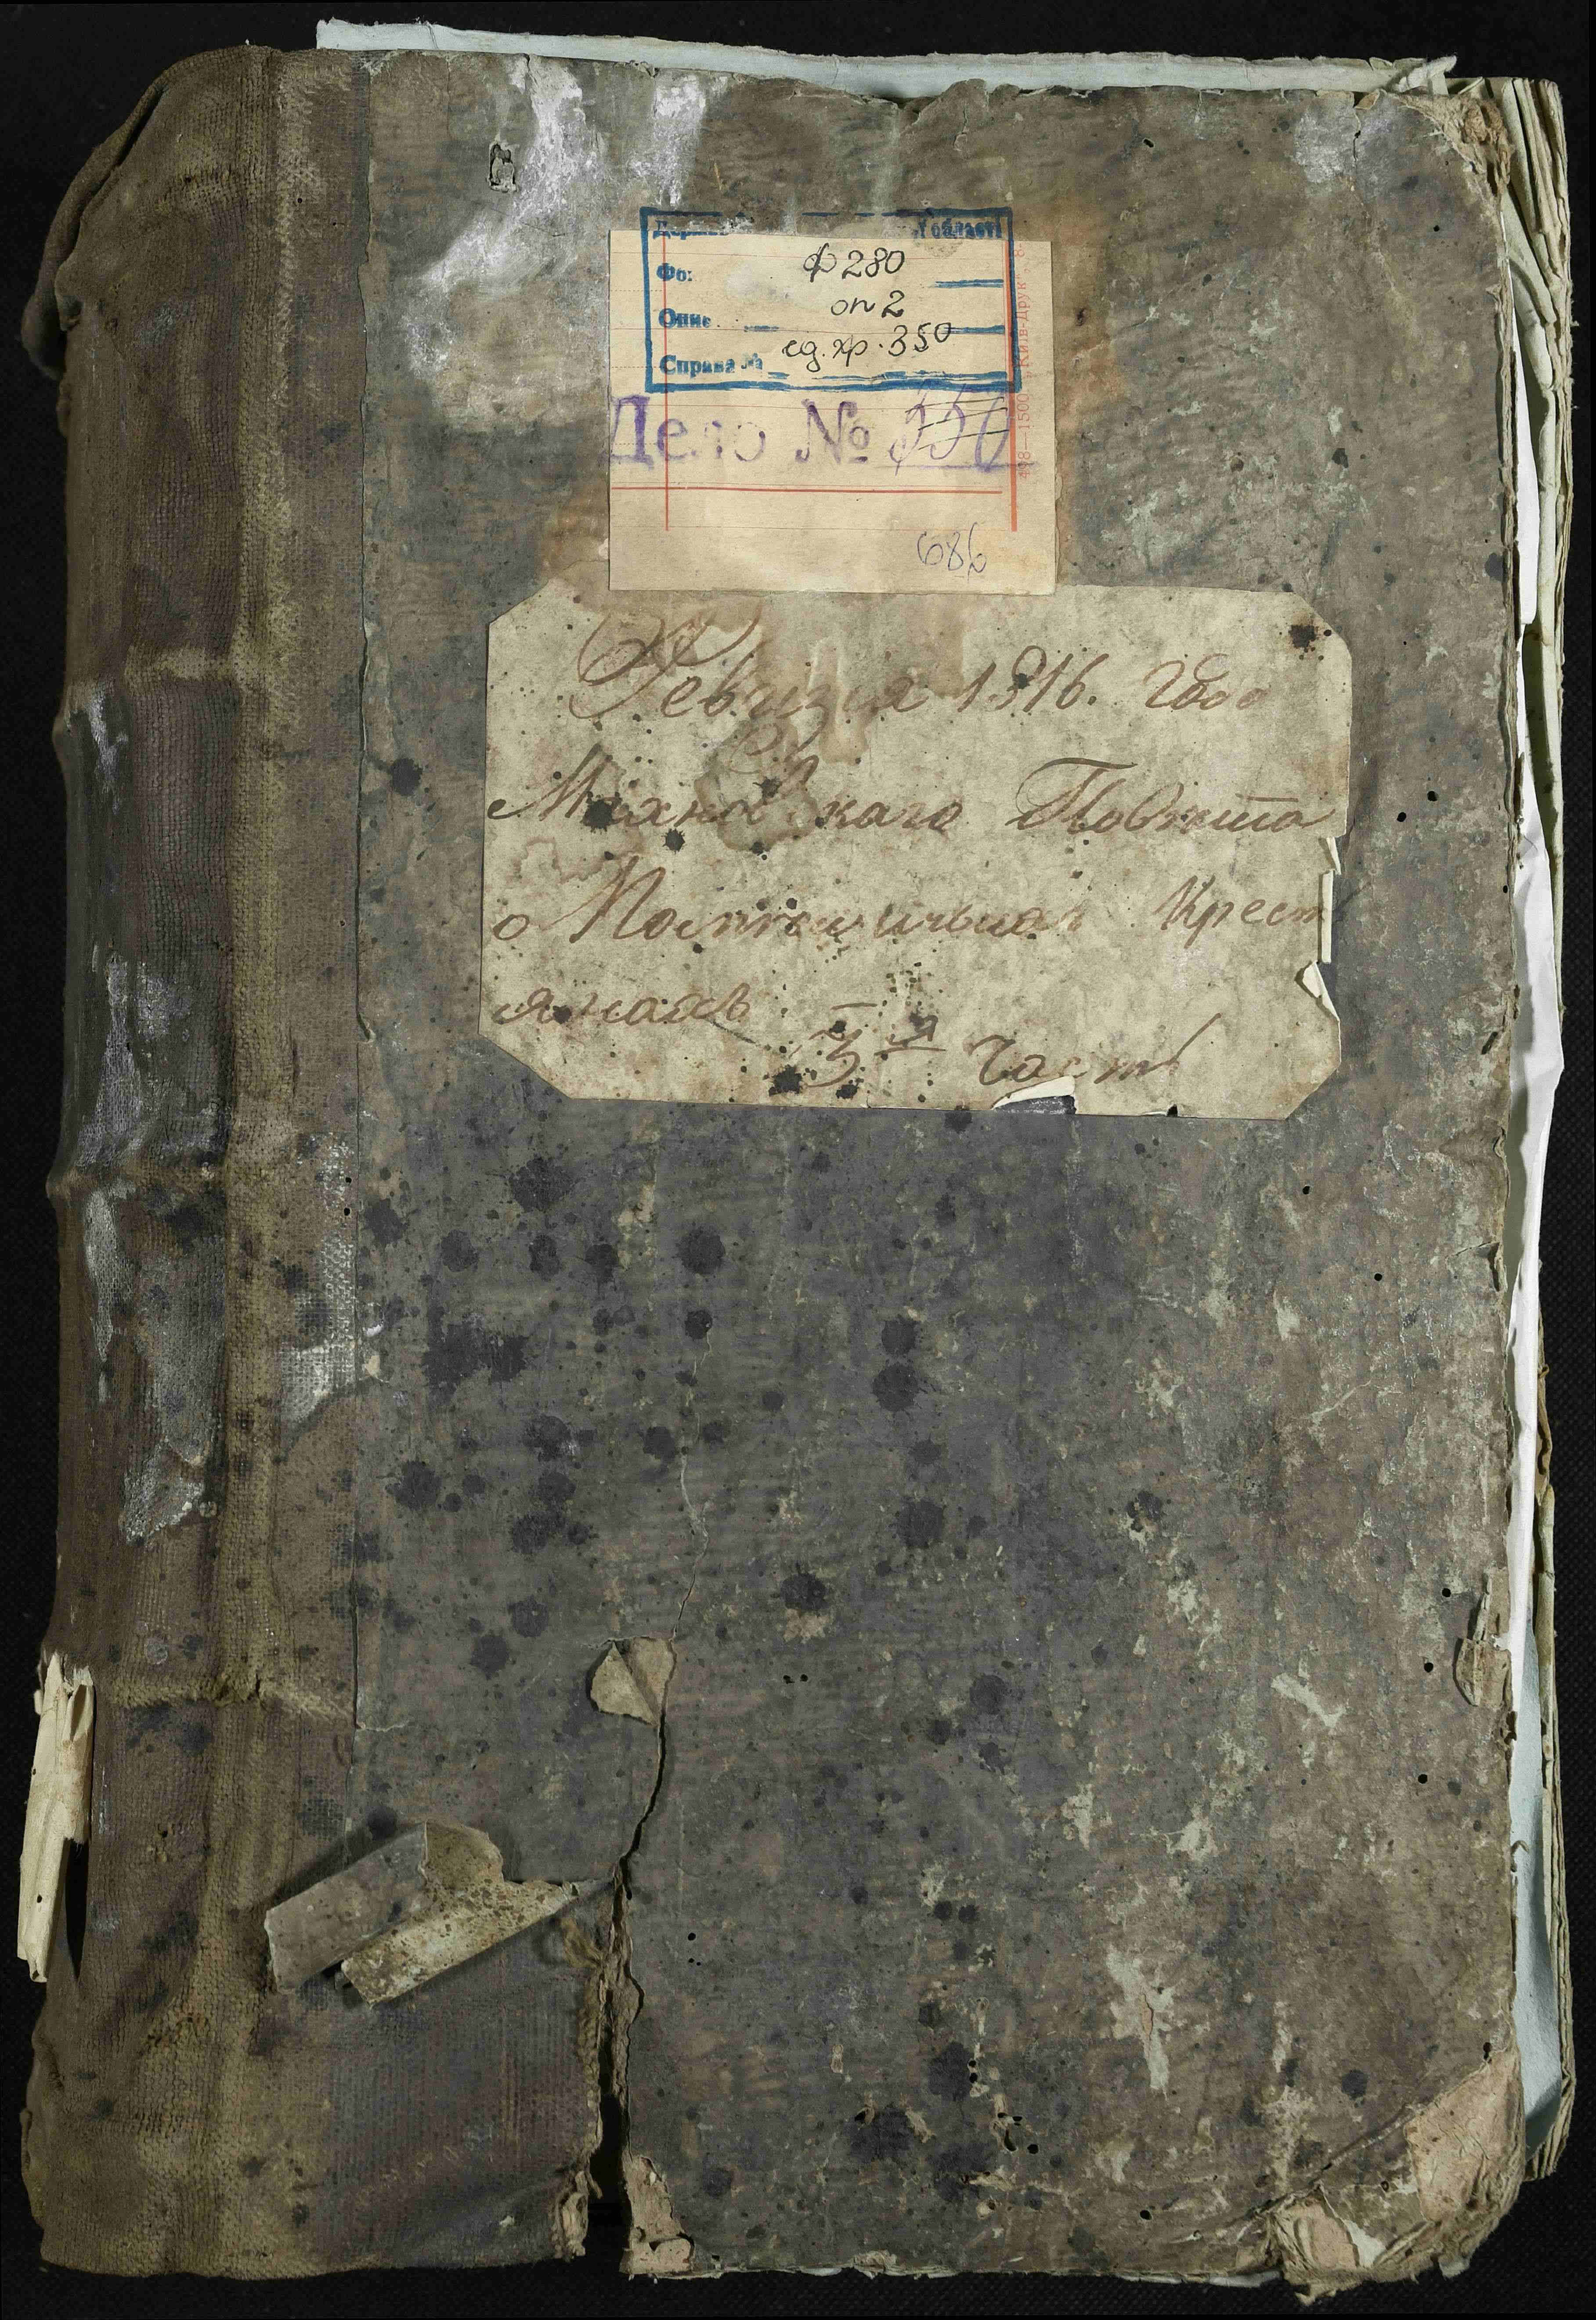 області
Ф 280
Опис оп 2
Справа № ед. хр. 350
Дело № 350
686
Ревизия 1816. года
Махновскаго Повета
о Помещичьихъ Крест
янахъ
3я часть